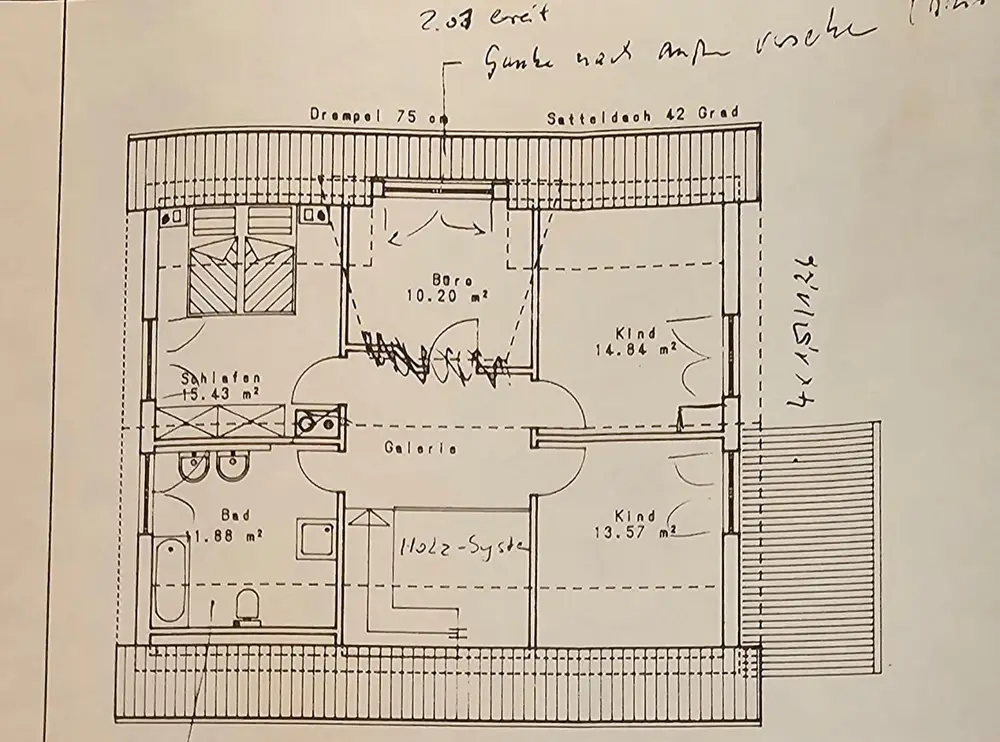 2.07 breit
Gaube nach außen
Drempel 75 cm
Satteldach 42 Grad
Büro
10.20 m²
Kind
14.84 m²
4 x 1,51/1,26
Schlafen
15.43 m²
Galerie
Bad
11.88 m²
Kind
13.57 m²
Holz-System